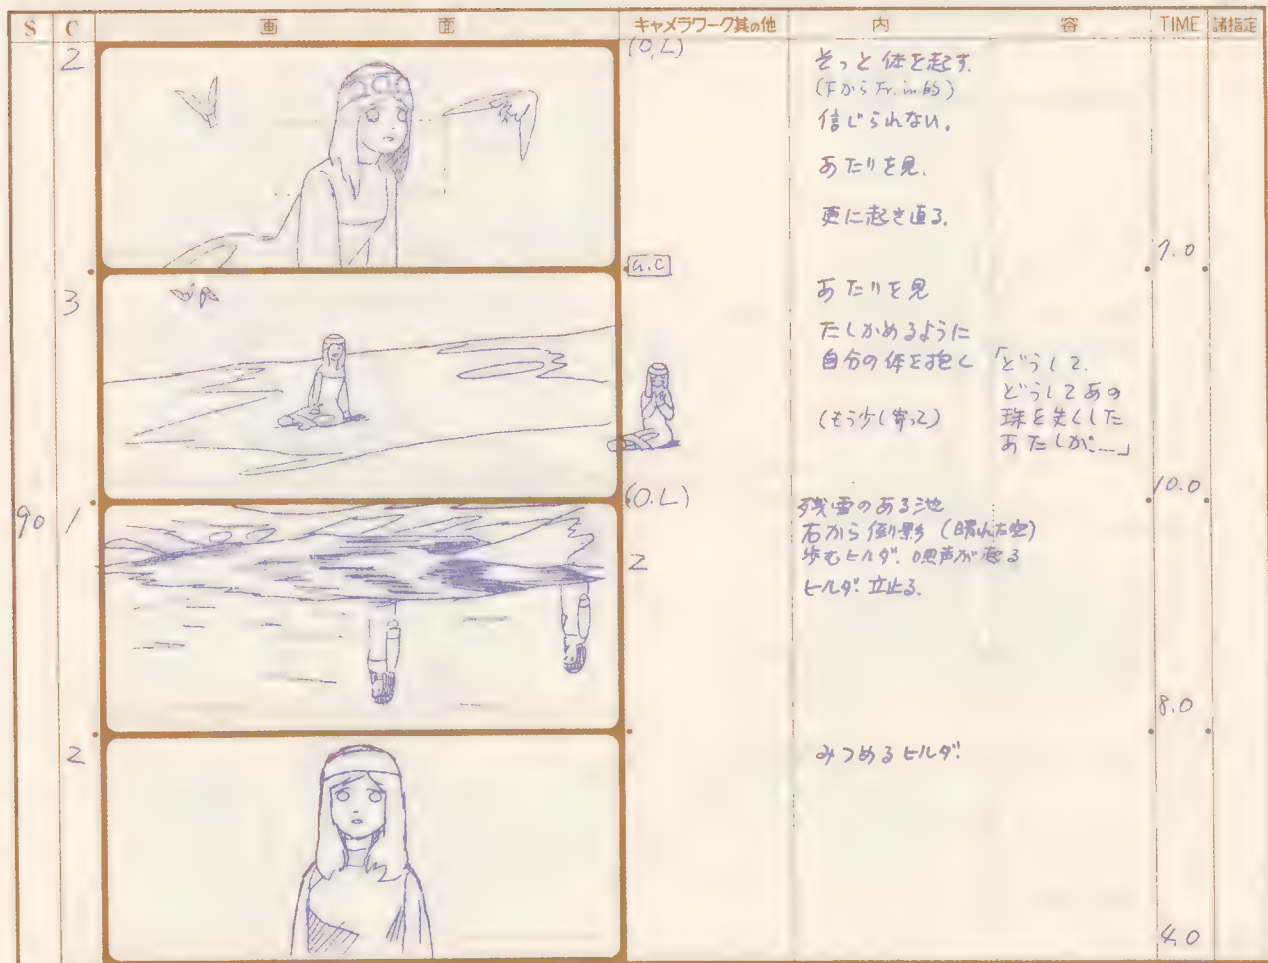 S C 画面 キャメラワーク其の他 内容 TIME 諸指定
2
(O.L)
そっと体を起す.
(下から Fr. in 的)
信じられない.
あたりを見.
更に起き直る.
7.0
3
あたりを見
たしかめるように
自分の体を抱く
(もう少し寄って)
「どうして.
どうしてあの
珠を失くした
あたしが……」
10.0
90
1
(O.L)
2
残雪のある池
右から倒影 (晴れた空)
歩むヒルダ. 唄声が起る
ヒルダ 立止る.
8.0
2
みつめるヒルダ.
4.0